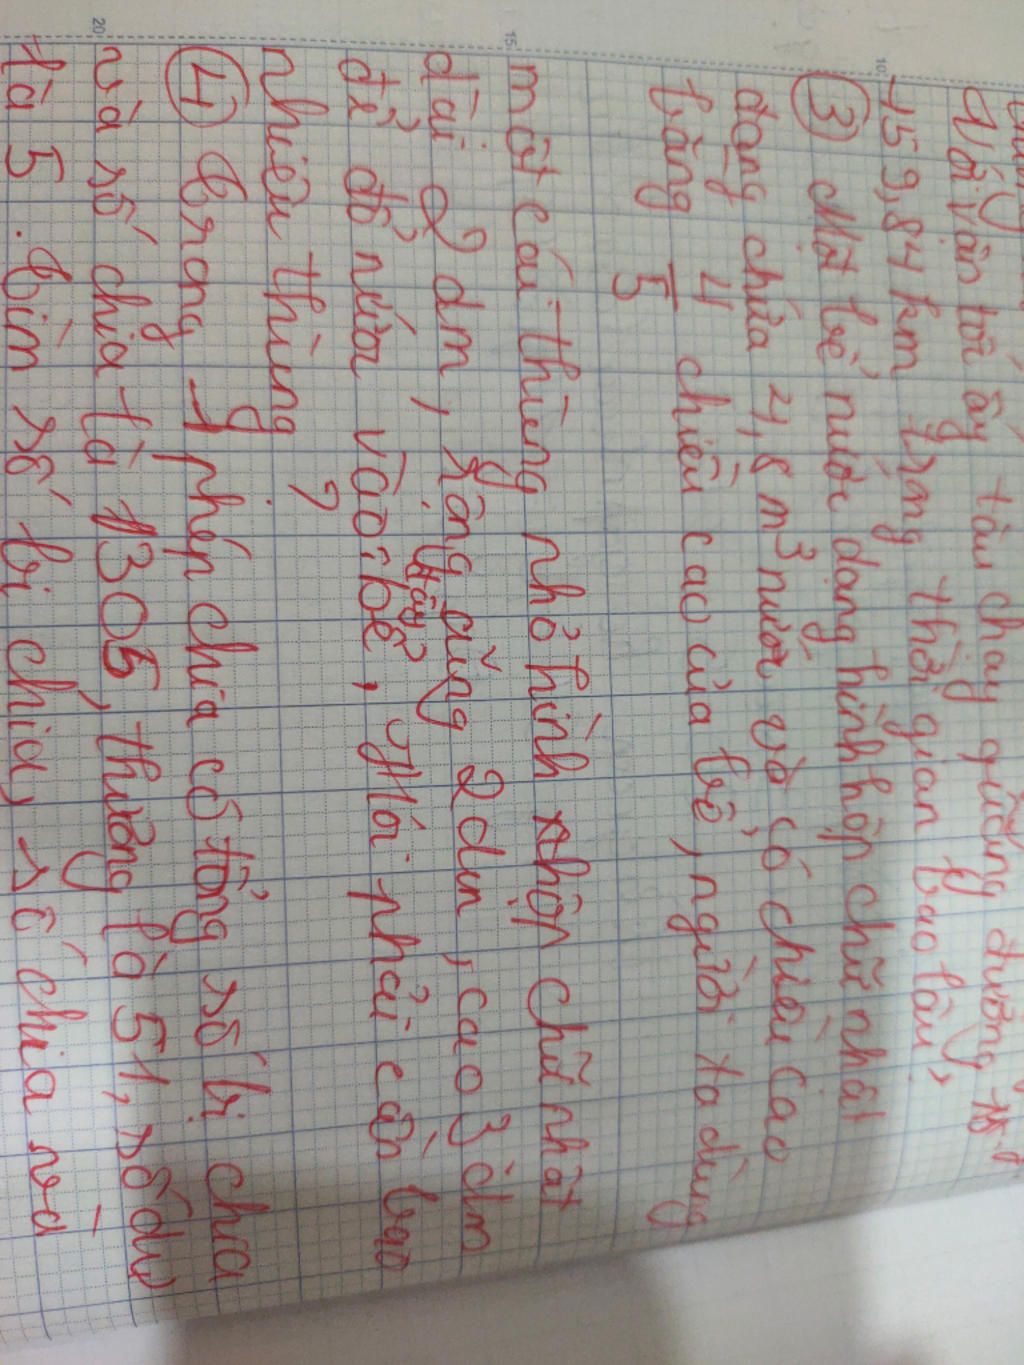 Với vận tốc ấy tàu chạy quãng đường
159,84 km trong thời gian bao lâu?
③ Một bể nước dạng hình hộp chữ nhật
đang chứa 4,8 m³ nước và có chiều cao
bằng 4/5 chiều cao của bể, người ta dùng
một cái thùng nhỏ hình hộp chữ nhật
dài 2 dm, rộng 2 dm, cao 3 dm
để đổ nước vào đầy bể, Hỏi phải cần bao
nhiêu thùng ?
④ Trong 1 phép chia có tổng số bị chia
và số chia là 1305, thương là 51, số dư
là 5. Tìm số bị chia, số chia và